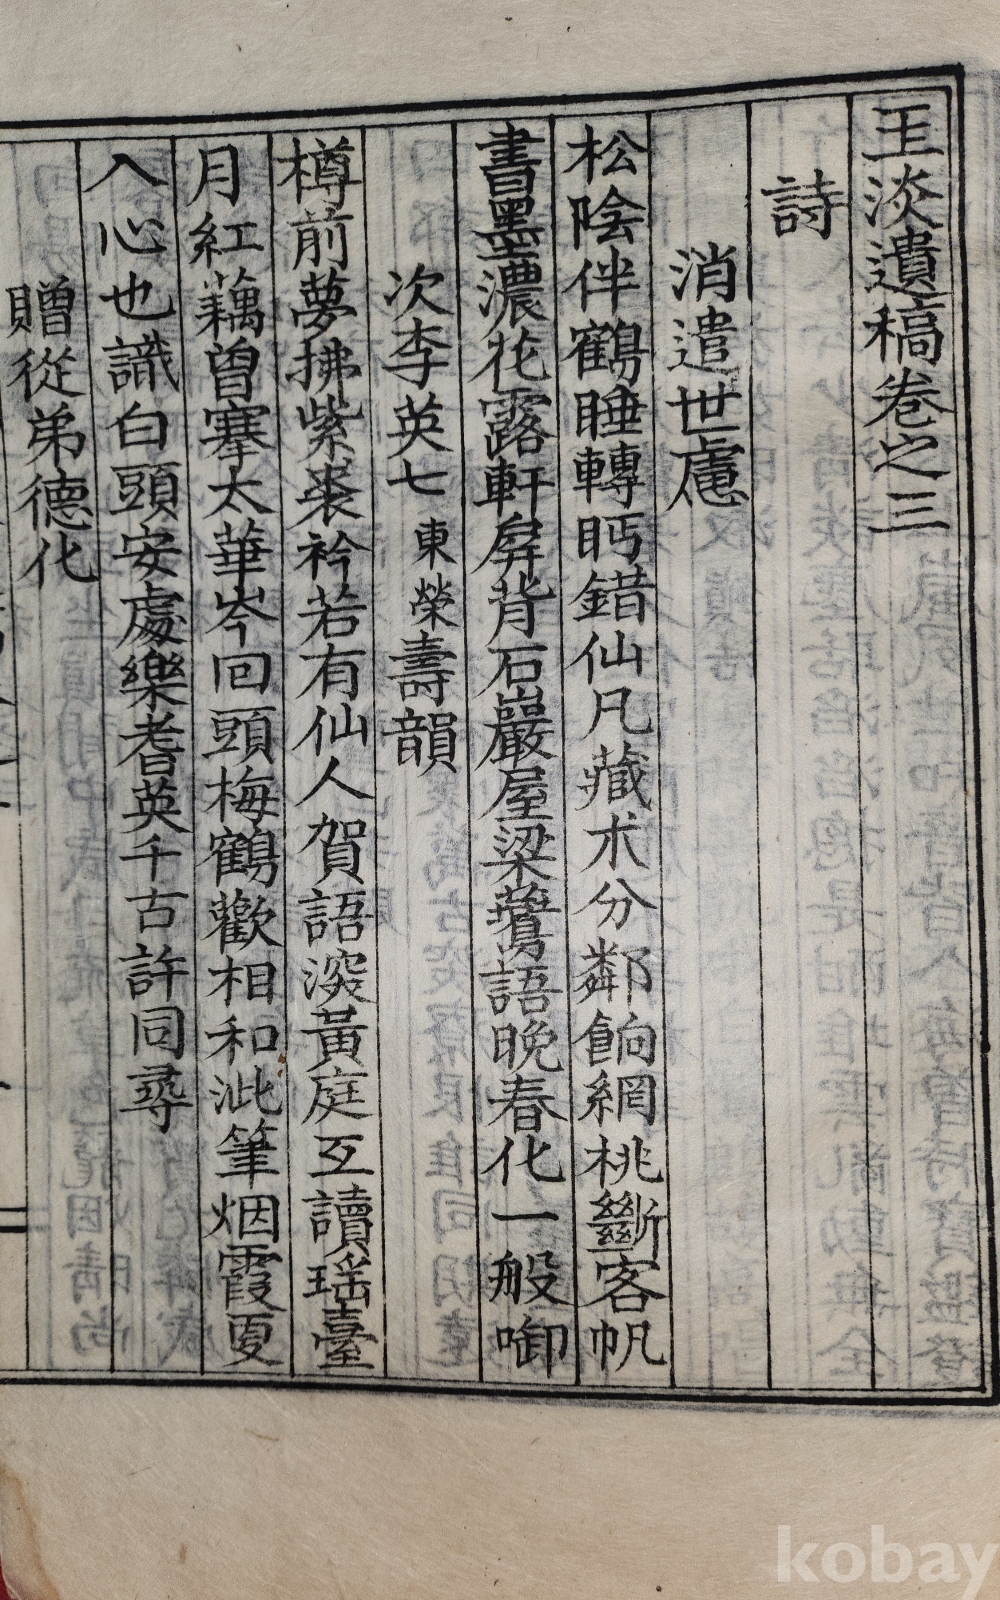 王淡遺稿卷之三
詩
消遣世慮
松陰伴鶴睡轉眄錯仙凡藏朮分鄰餉網桃斷客帆
書墨濃花露軒屛背石巖屋梁鶯語晩春化一般啣
次李英七東榮壽韻
樽前夢拂紫裘衿若有仙人賀語深黃庭互讀瑶臺
月紅藕曾搴太華岑回頭梅鶴歡相和泚筆烟霞更
入心也識白頭安處樂耆英千古許同尋
贈從弟德化
kobay